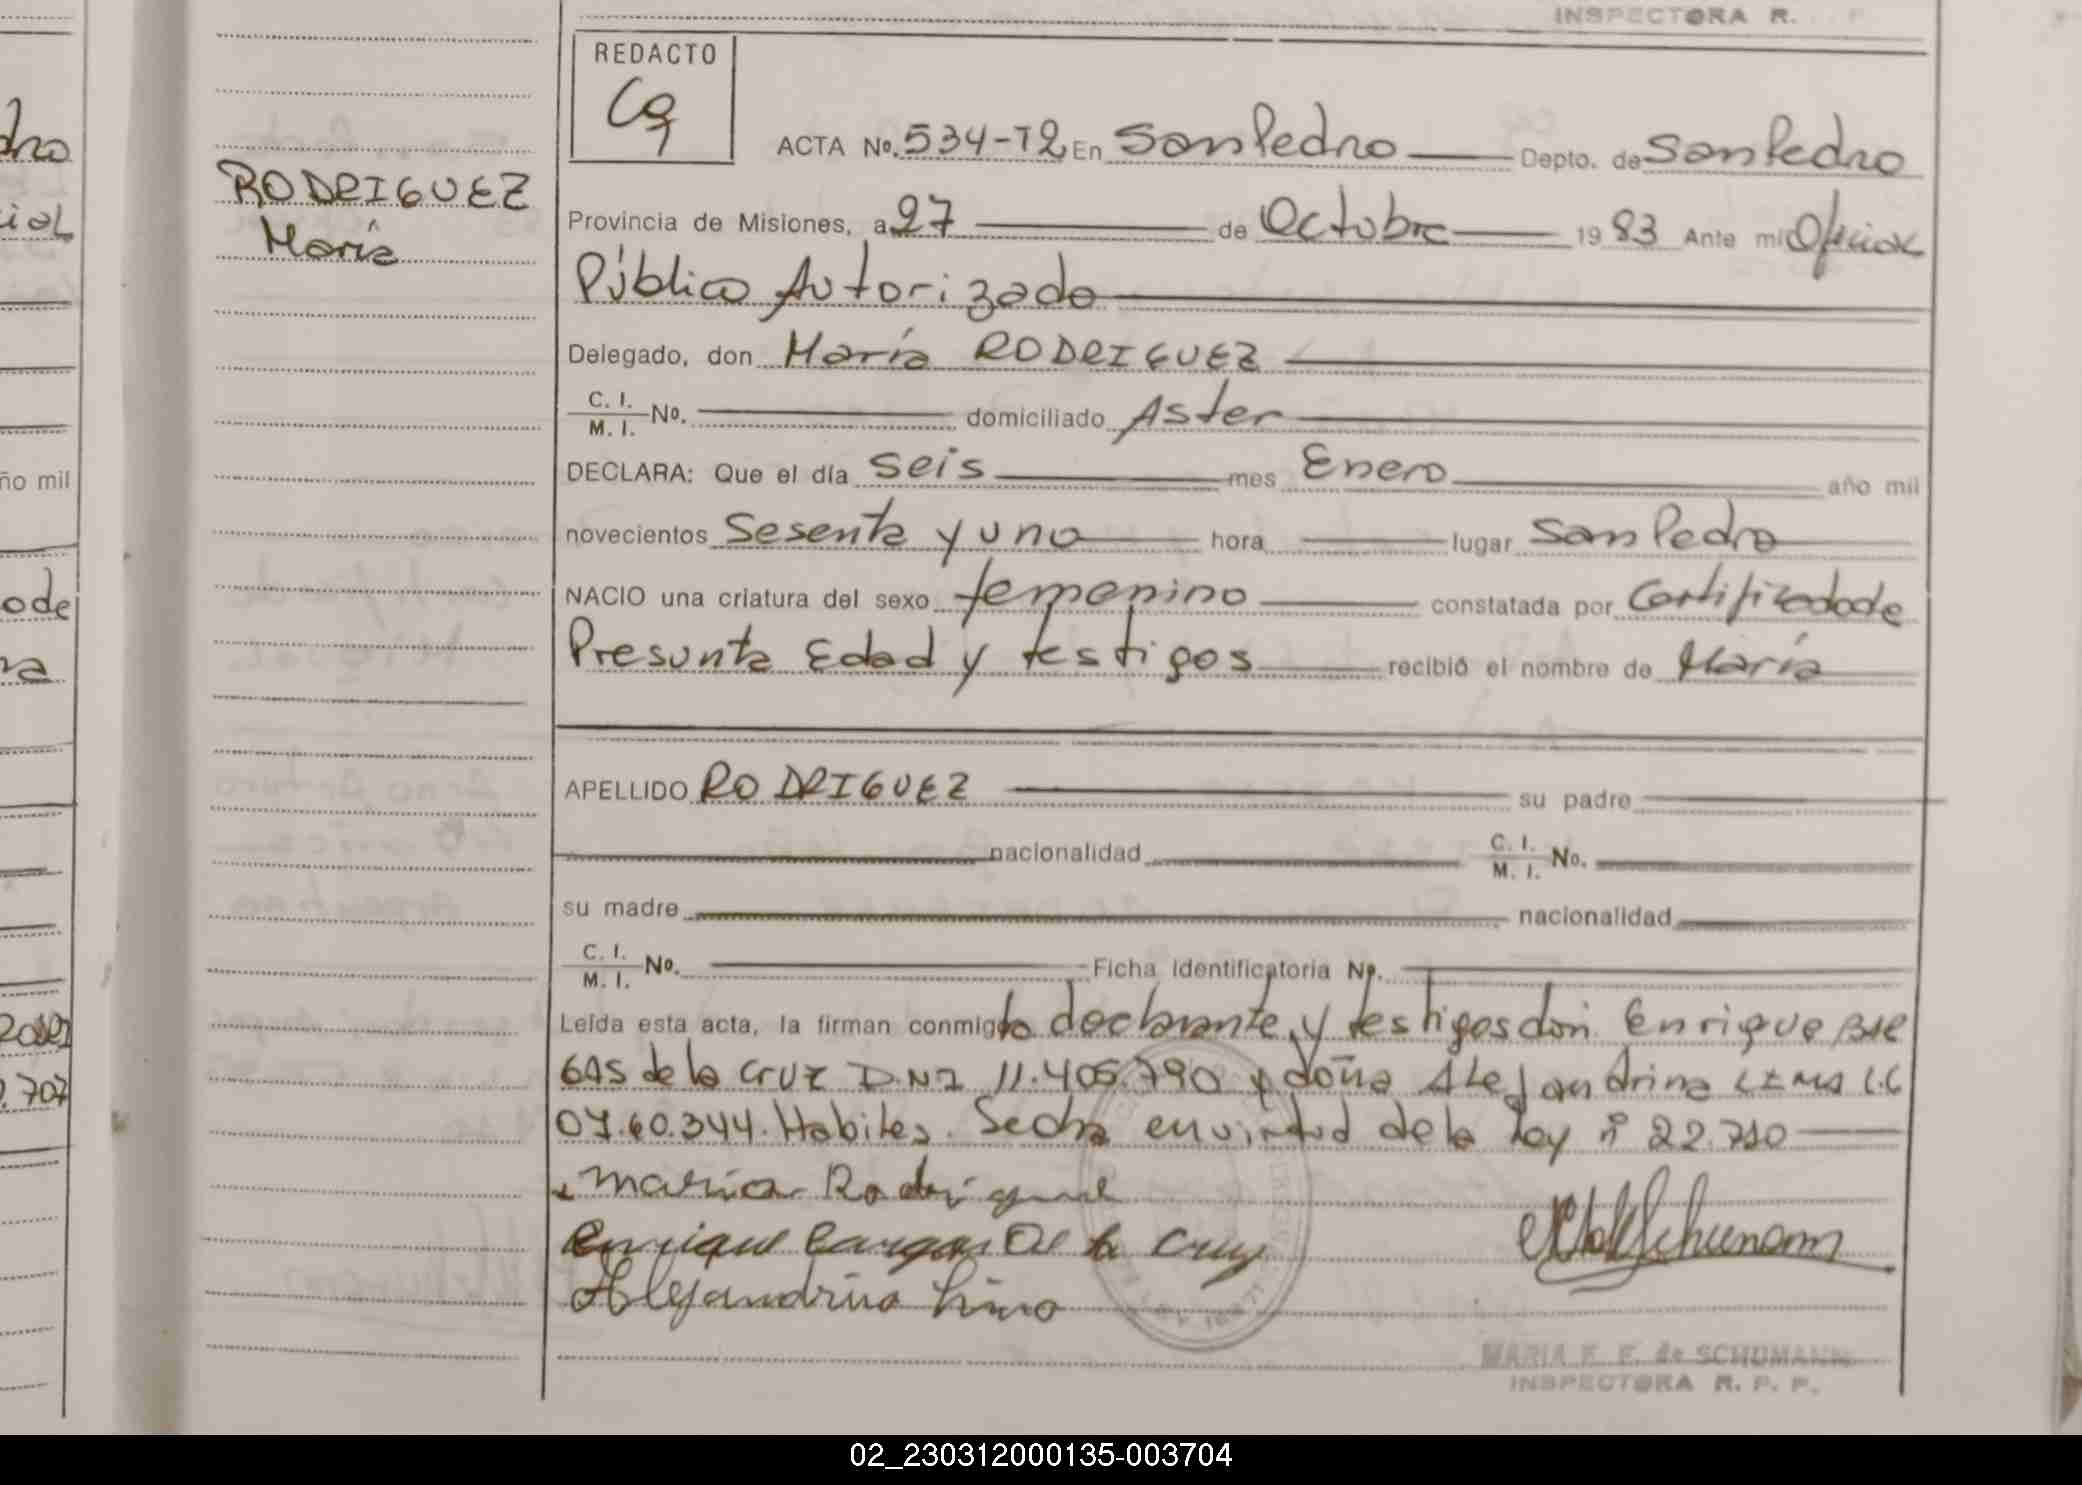 INSPECTORA R. P
REDACTO
ACTA Nº. 534-T2 En San Pedro Depto. de San Pedro
RODRIGUEZ
María
Provincia de Misiones, a 27 de Octubre 1983 Ante mi Oficial
Público Autorizado
Delegado, don María RODRIGUEZ
C. I.
M. I. Nº. domiciliado Aster
DECLARA: Que el día seis mes Enero año mil
novecientos sesenta y uno hora lugar San Pedro
NACIO una criatura del sexo femenino constatada por Certificado de
Presunta Edad y testigos recibió el nombre de María
APELLIDO RODRIGUEZ su padre
nacionalidad C. I.
M. I. No.
su madre nacionalidad
C. I.
M. I. Nº. Ficha Identificatoria Nº.
Leída esta acta, la firman conmigo la declarante y testigos don Enrique BAR
GAS de la CRUZ D.N.I 11.405.790 y doña Alejandrina LIMA L.C
07.60.344. Habiles. Secha en virtud de la Ley nº 22.710
Maria Rodrigue
Enrique Bargas De la Cruz
Alejandrina Lima
Schumann
MARIA F. F. de SCHUMANN
INSPECTORA R. P. P.
dro
cial
ño mil
ode
na
.707
02_230312000135-003704